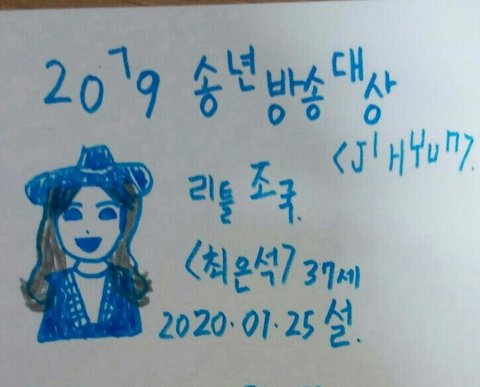 2079 송년 방송대상
<JIHYUN>
리틀 조국.
<최은석> 37세
2020.01.25 설.